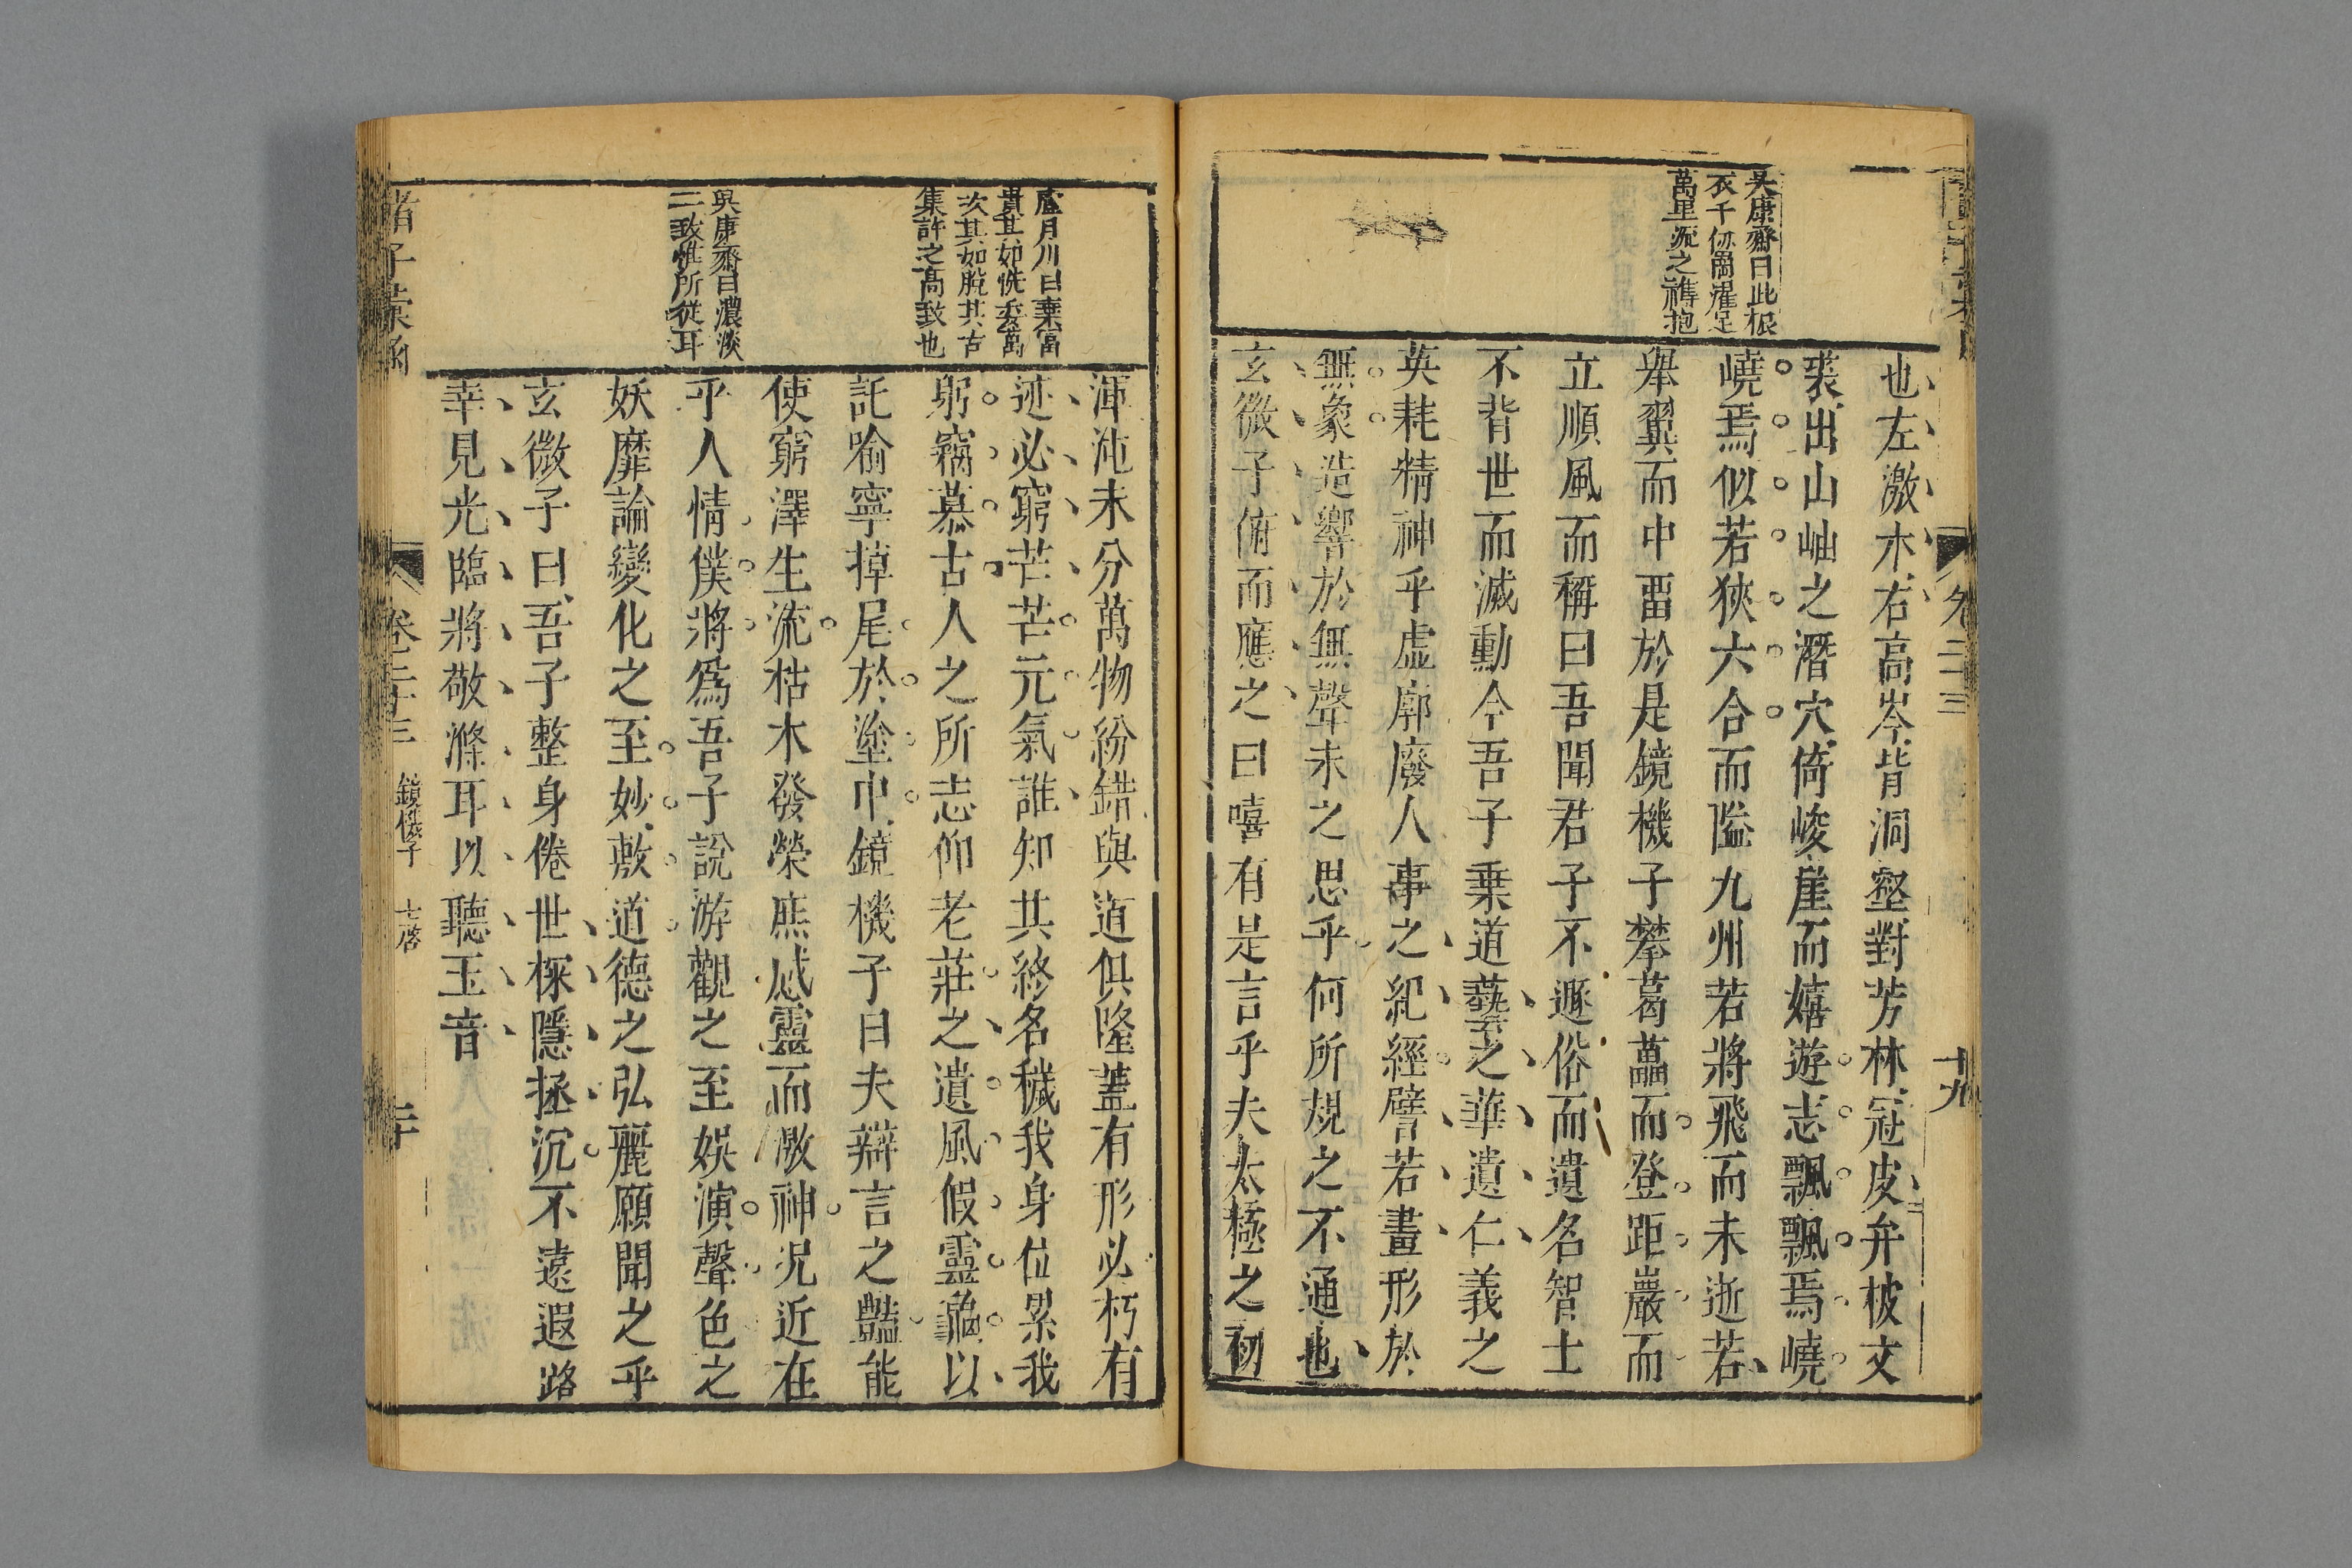 卷二十三
十九
吳康齋曰此振
衣千仞岡濯足
萬里流之襟抱
也左激水右高岑背洞壑對芳林冠皮弁被文
裘出山岫之潛穴倚峻崖而嬉遊志飄飄焉嶢
嶢焉似若狹六合而隘九州若將飛而未逝若
舉翼而中畱於是鏡機子攀葛藟而登距巖而
立順風而稱曰吾聞君子不遯俗而遺名智士
不背世而滅動今吾子棄道藝之華遺仁義之
英耗精神乎虛廓廢人事之紀經譬若畫形於
無象造響於無聲未之思乎何所規之不通也
玄微子俯而應之曰嘻有是言乎夫太極之初
盧月川曰棄富
貴其如恍委萬
次其如脫其古
集許之高致也
與康齋曰濃淡
二致惟所從耳
渾沌未分萬物紛錯與道俱隆蓋有形必朽有
迹必窮芒芒元氣誰知其終名穢我身位累我
躬竊慕古人之所志仰老莊之遺風假靈龜以
託喻寧掉尾於塗中鏡機子曰夫辯言之豔能
使窮澤生流枯木發榮庶感靈而激神況近在
乎人情僕將爲吾子說游觀之至娛演聲色之
妖靡論變化之至妙敷道德之弘麗願聞之乎
玄微子曰吾子整身倦世探隱拯沉不遠遐路
幸見光臨將敬滌耳以聽玉音
諸子彙函
卷二十三
鏡機子
七啓
二十